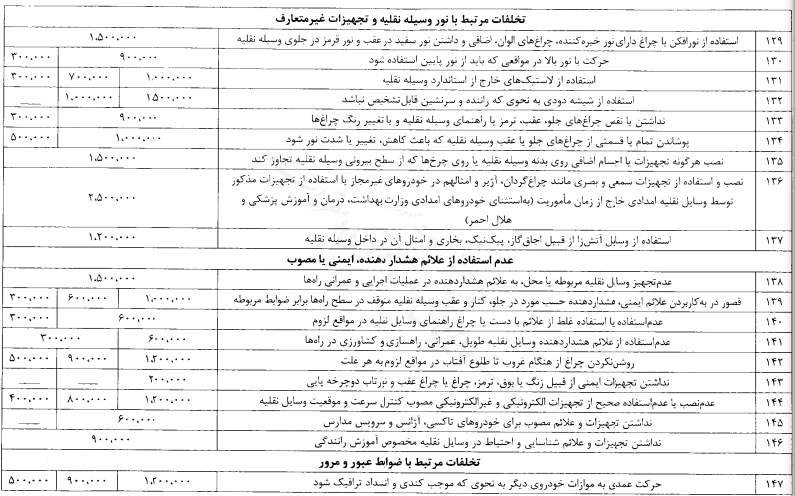 تخلفات مرتبط با نور وسیله نقلیه و تجهیزات غیرمتعارف
۱۲۹ استفاده از نورافکن یا چراغ دارای نور خیره‌کننده، چراغ‌های الوان، اضافی و داشتن نور سفید در عقب و نور قرمز در جلوی وسیله نقلیه ۱،۵۰۰،۰۰۰
۱۳۰ حرکت با نور بالا در مواقعی که باید از نور پایین استفاده شود ۹۰۰،۰۰۰ ۳۰۰،۰۰۰
۱۳۱ استفاده از لاستیک‌های خارج از استاندارد وسیله نقلیه ۱،۰۰۰،۰۰۰ ۷۰۰،۰۰۰ ۳۰۰،۰۰۰
۱۳۲ استفاده از شیشه دودی به نحوی که راننده و سرنشین قابل‌تشخیص نباشد ۱۵۰۰،۰۰۰ ۱،۰۰۰،۰۰۰ ــــ
۱۳۳ نداشتن یا نقص چراغ‌های جلو، عقب، ترمز یا راهنمای وسیله نقلیه و یا تغییر رنگ چراغ‌ها ۹۰۰،۰۰۰ ۳۰۰،۰۰۰
۱۳۴ پوشاندن تمام یا قسمتی از چراغ‌های جلو یا عقب وسیله نقلیه که باعث کاهش، تغییر یا شدت نور شود ۱،۰۰۰،۰۰۰ ۵۰۰،۰۰۰
۱۳۵ نصب هرگونه تجهیزات یا اجسام اضافی روی بدنه وسیله نقلیه یا روی چرخ‌ها که از سطح بیرونی وسیله نقلیه تجاوز کند ۱،۵۰۰،۰۰۰
۱۳۶ نصب و استفاده از تجهیزات سمعی و بصری مانند چراغ‌گردان، آژیر و امثالهم در خودروهای غیرمجاز یا استفاده از تجهیزات مذکور
توسط وسایل نقلیه امدادی خارج از زمان مأموریت (به‌استثنای خودروهای امدادی وزارت بهداشت، درمان و آموزش پزشکی و ۲،۵۰۰،۰۰۰
هلال احمر)
۱۳۷ استفاده از وسایل آتش‌زا از قبیل اجاق‌گاز، پیک‌نیک، بخاری و امثال آن در داخل وسیله نقلیه ۱،۲۰۰،۰۰۰
عدم استفاده از علائم هشدار دهنده، ایمنی یا مصوب
۱۳۸ عدم‌تجهیز وسایل نقلیه مربوطه یا محل، به علائم هشداردهنده در عملیات اجرایی و عمرانی راه‌ها ۱،۵۰۰،۰۰۰
۱۳۹ قصور در به‌کاربردن علائم ایمنی، هشداردهنده حسب مورد در جلو، کنار و عقب وسیله نقلیه متوقف در سطح راه‌ها برابر ضوابط مربوطه ۱،۰۰۰،۰۰۰ ۶۰۰،۰۰۰ ۳۰۰،۰۰۰
۱۴۰ عدم‌استفاده یا استفاده غلط از علائم با دست یا چراغ راهنمای وسایل نقلیه در مواقع لزوم ۶۰۰،۰۰۰ ۳۰۰،۰۰۰
۱۴۱ عدم‌استفاده از علائم هشداردهنده وسایل نقلیه طویل، عمرانی، راهسازی و کشاورزی در راه‌ها ۶۰۰،۰۰۰ ۳۰۰،۰۰۰
۱۴۲ روشن‌نکردن چراغ از هنگام غروب تا طلوع آفتاب در مواقع لزوم به هر علت ۱،۲۰۰،۰۰۰ ۹۰۰،۰۰۰ ۵۰۰،۰۰۰
۱۴۳ نداشتن تجهیزات ایمنی از قبیل زنگ یا بوق، ترمز، چراغ یا چراغ عقب و نورتاب دوچرخه پایی ۲۰۰،۰۰۰ ــــ ــــ
۱۴۴ عدم‌نصب یا عدم‌استفاده صحیح از تجهیزات الکترونیکی و غیرالکترونیکی مصوب کنترل سرعت و موقعیت وسایل نقلیه ۱،۲۰۰،۰۰۰ ۸۰۰،۰۰۰ ۴۰۰،۰۰۰
۱۴۵ نداشتن تجهیزات و علائم مصوب برای خودروهای تاکسی، آژانس و سرویس مدارس ۶۰۰،۰۰۰ ــــ
۱۴۶ نداشتن تجهیزات و علائم شناسایی و احتیاط در وسایل نقلیه مخصوص آموزش رانندگی ۹۰۰،۰۰۰
تخلفات مرتبط با ضوابط عبور و مرور
۱۴۷ حرکت عمدی به موازات خودروی دیگر به نحوی که موجب کندی و انسداد ترافیک شود ۱،۲۰۰،۰۰۰ ۹۰۰،۰۰۰ ۵۰۰،۰۰۰